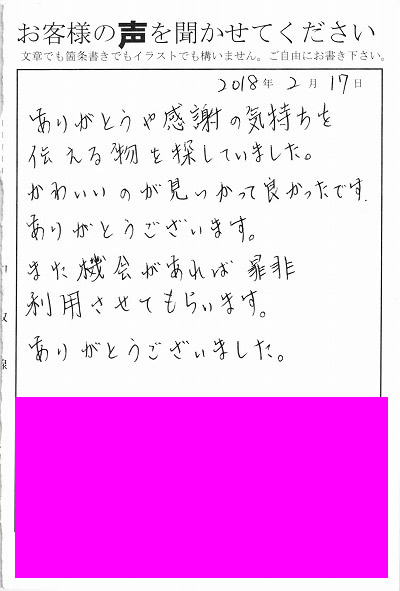 お客様の声を聞かせてください
文章でも箇条書きでもイラストでも構いません。ご自由にお書き下さい。
2018年 2月 17日
ありがとうや感謝の気持ちを
伝える物を探していました。
かわいいのが見つかって良かったです.
ありがとうございます。
また機会があれば是非
利用させてもらいます。
ありがとうございました。